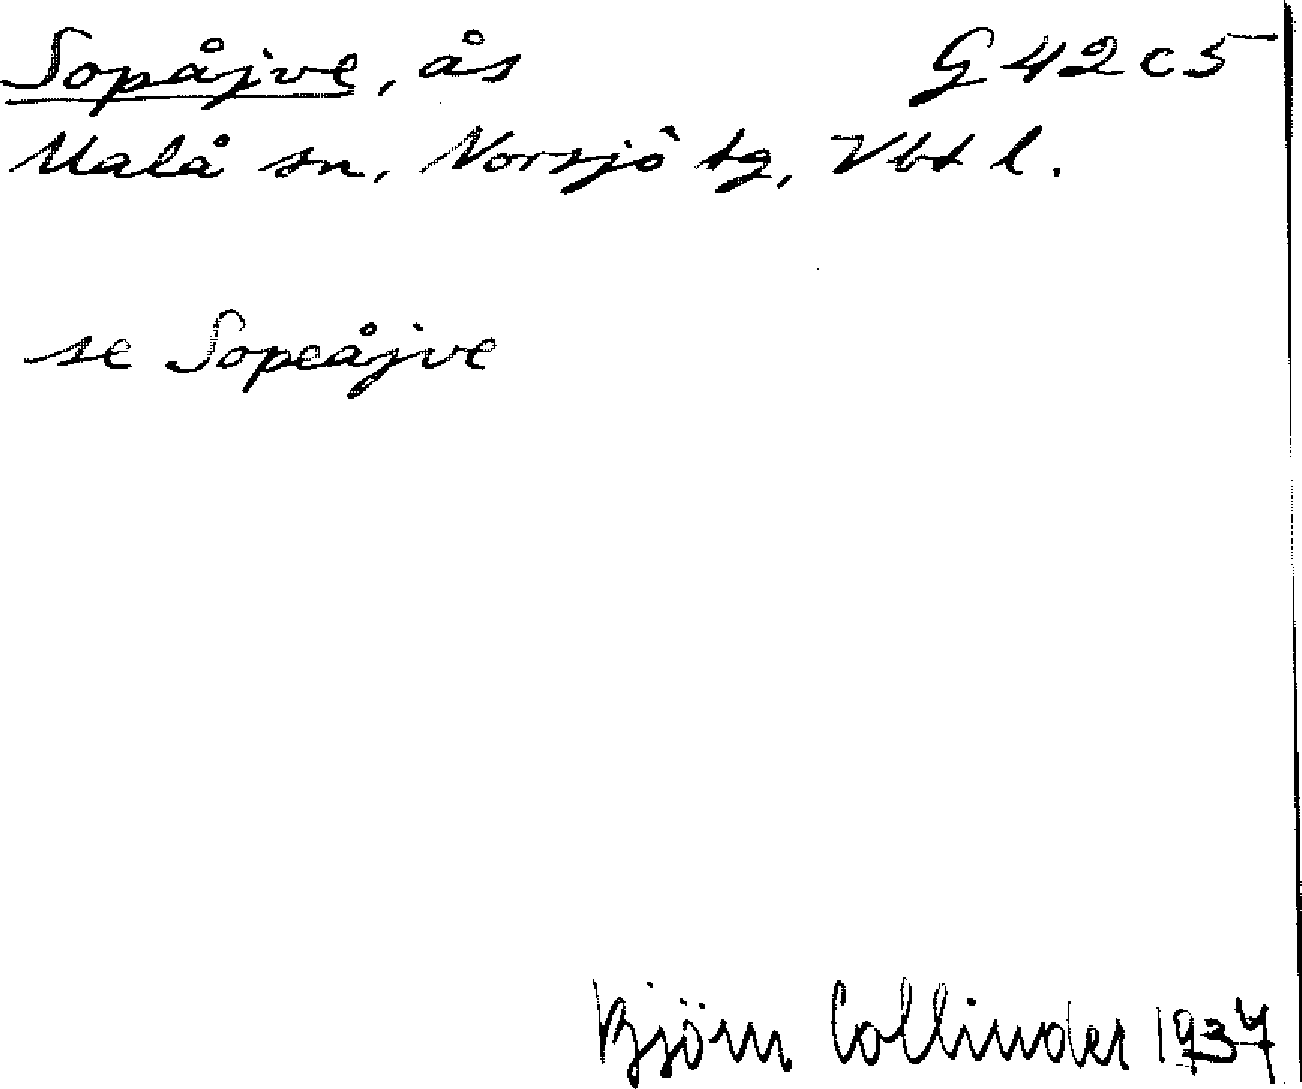 Sopåjve, ås G42c5
Malå sn, Norsjö tg, Vbt l.
se Sopeåjve
Björn Collinder 1937